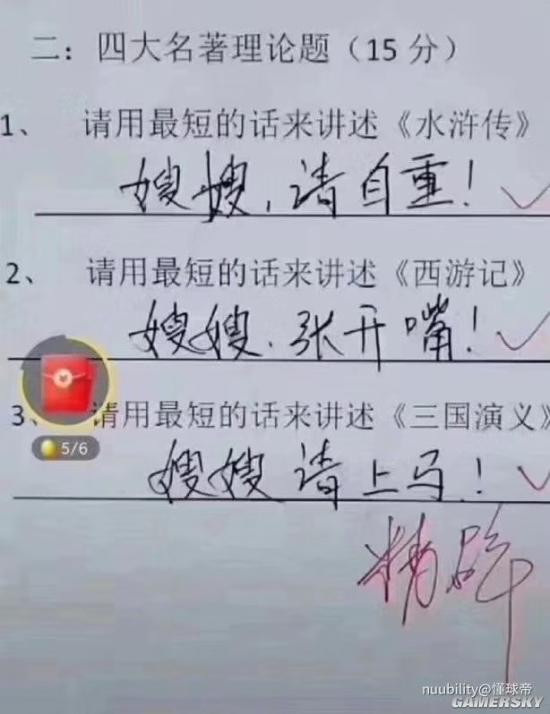 二：四大名著理论题（15 分）
1、 请用最短的话来讲述《水浒传》
嫂嫂，请自重！
2、 请用最短的话来讲述《西游记》
嫂嫂．张开嘴！
3、 请用最短的话来讲述《三国演义》
5/6
嫂嫂 请上马！
精辟
nuubility@懂球帝
GAMERSKY